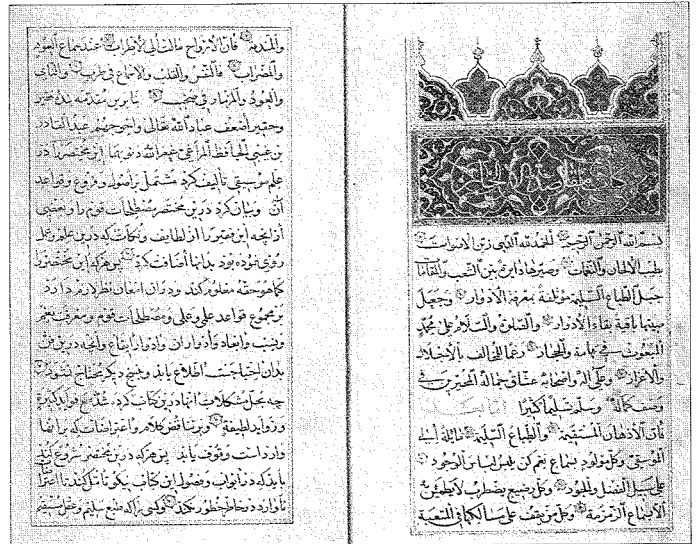 بسم الله الرحمن الرحيم الحمد لله الذي زين الاصوات
بطيب الالحان والنغمات وصيرها دائرة بين الشعب والمقامات
جبل الطباع السليمة مؤلفة بمعرفة الأدوار وجعل
بينها باقية بقاء الأدوار والصلوة والسلام على محمد
المبعوث في تهامة والحجاز وعما للمخالف بالاضلال
والاعزاز وعلى آله واصحابه عشاق جماله المخبرين في
وصف كماله وسلم تسليما كثيرا اما بعد
فان الاذهان المستقيمة والطباع السليمة مائلة الى
الموسيقى وكل مولود بسماع نغم كن يلبس لباس الوجود
على سبيل الفضل والجود وكل رضيع يضطرب لا يطمئن
الا بسماع الزمزمة وكل من يقف على مسالكها في التعبية
والهندمة فان الارواح مالت الى الاطراب عند سماع العود
والمضراب فالنفس والقلب والاسماع في طرب والناى
والعود والمزمار في صخب بنا برين مقدمه بنده فقير
وحقير اضعف عباد الله تعالى واحوجهم عبدالقادر
بن غيبى الحافظ المراغى غفر الله ذنوبهما اين مختصر را در
علم موسيقى تأليف كرد مشتمل بر اصول و فروع و قواعد
آن و بيان كرد درين مختصر مصطلحات قوم را و بعضى
از آنچه اين فقير را از لطايف و نكات كه درين علم و عمل
روى نموده بود بدانها اضافت كرد پس هركه اين مختصر را
كما هو حقه معلوم كند و در آن امعان نظر لازم دارد
بر مجموع قواعد علمى و عملى و مصطلحات قوم و معرفت نغم
و نسب و ابعاد و ادوار آن و ادوار ايقاع و آنچه درين فن
بدان احتياج است اطلاع يابد و بهيچ ديگر محتاج نشود
چه بحل مشكلات آنها درين كتاب كرده شد مع فوايد كثيرة
و زوايد لطيفة و بر تناقض كلام و اعتراضات كه بر آنها
وارد است وقوف يابد پس هركه درين مختصر شروع كند
بايد كه در ابواب و فصول اين كتاب نيكو تأمل كند تا اعتراض
ناوارد در خاطر خطور نكند وكسى را كه طبع سليم و عقل مستقيم